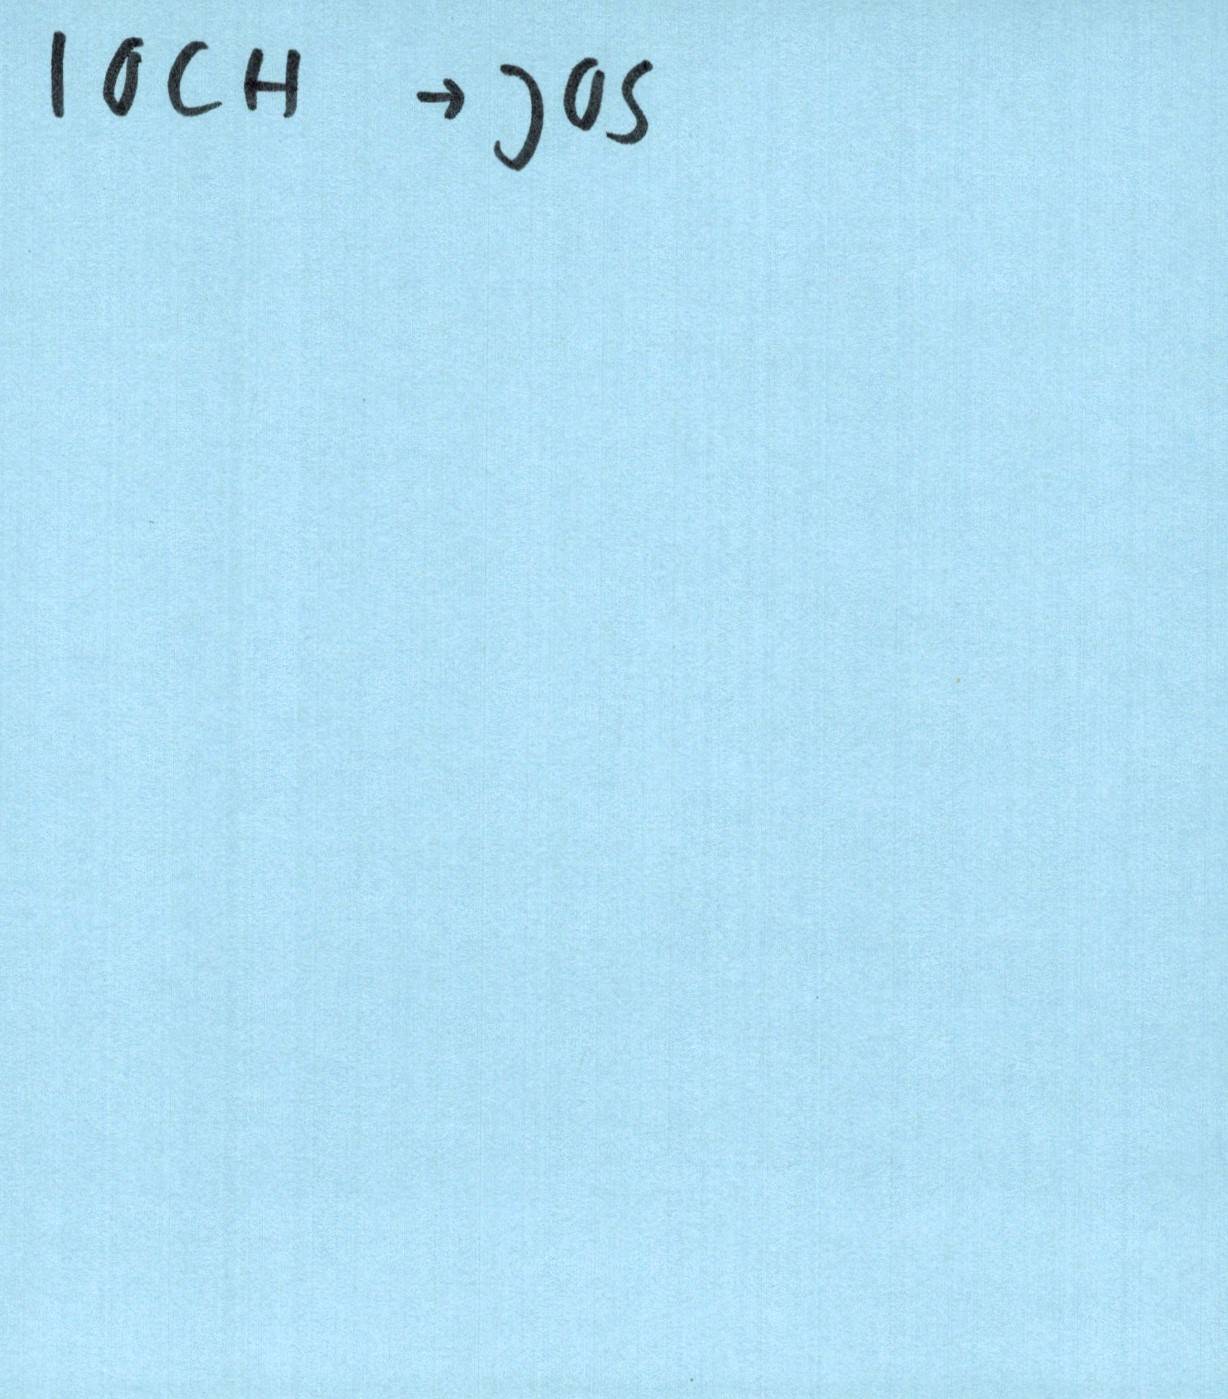 IOCH → JOS